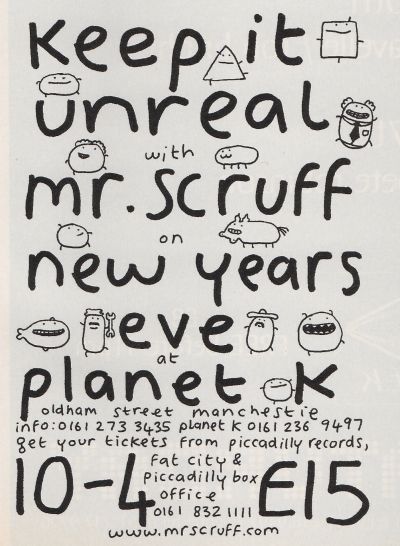 keep it
unreal
with
mr.scruff
on
new years
eve
at
planet K
oldham street manchestie
info:0161 273 3435 planet K 0161 236 9497
get your tickets from piccadilly records,
fat city &
piccadilly box
office
0161 832 1111
10-4
£15
www.mrscruff.com